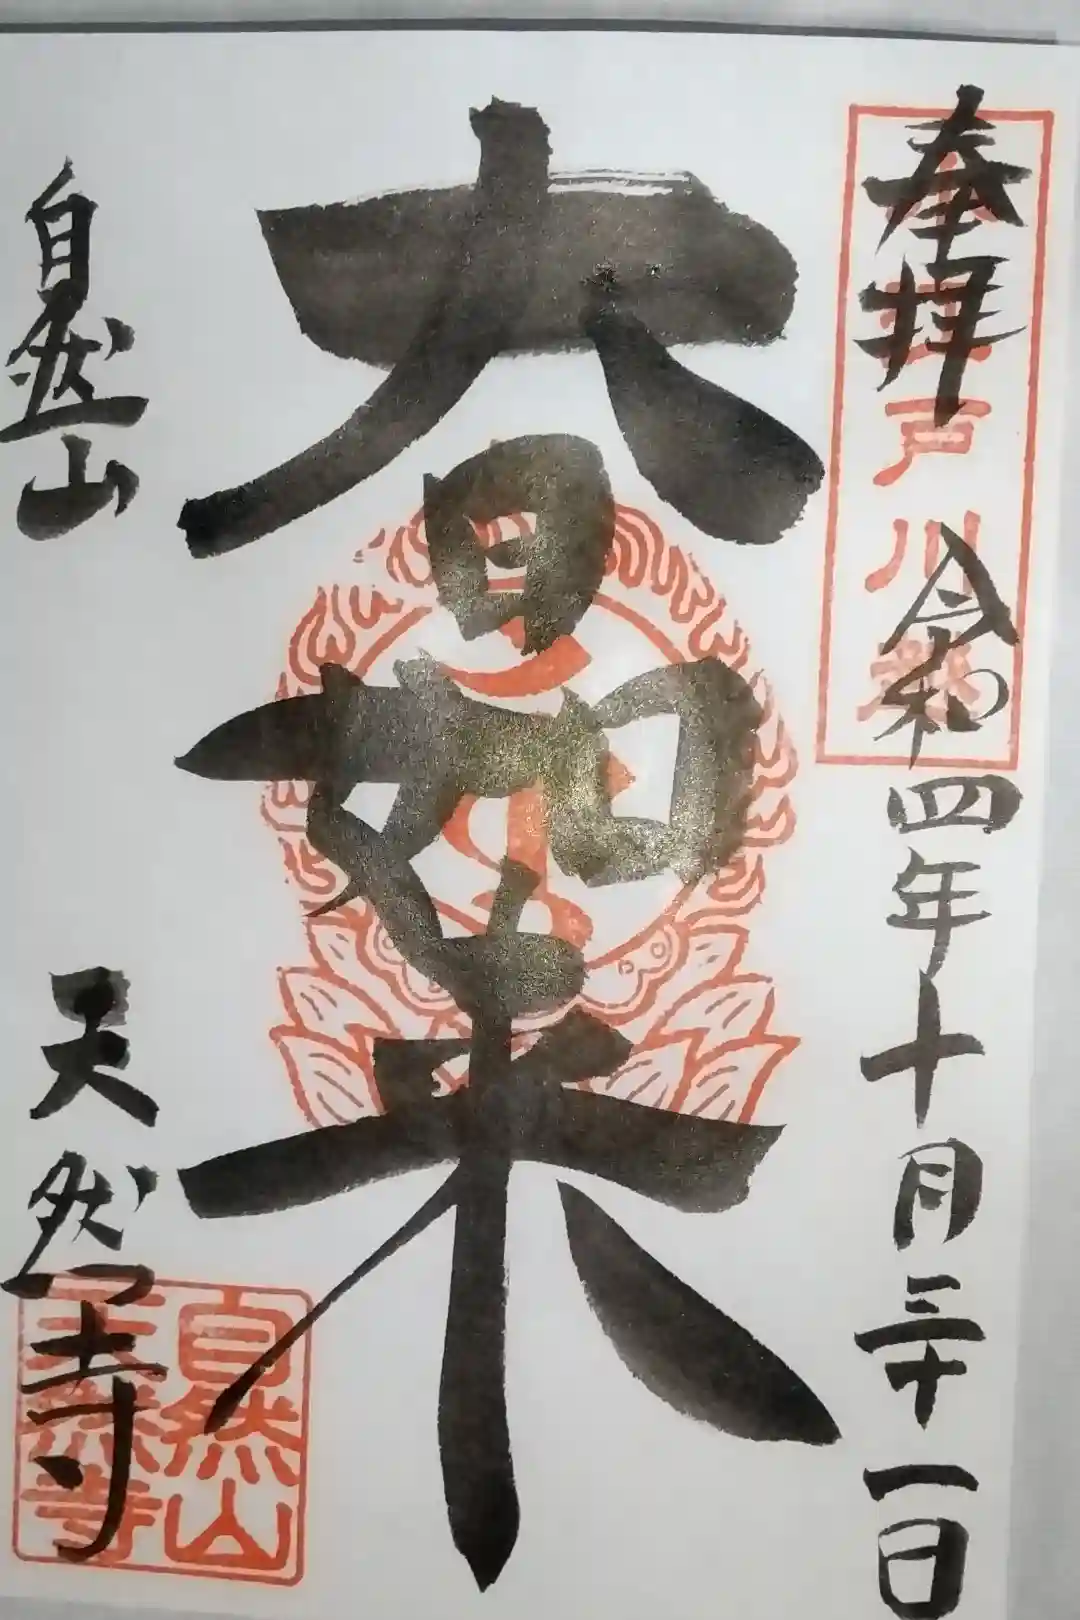 奉拝
令和四年十月三十一日
大日如来
自然山
天然寺
戸川
自然山
天然寺